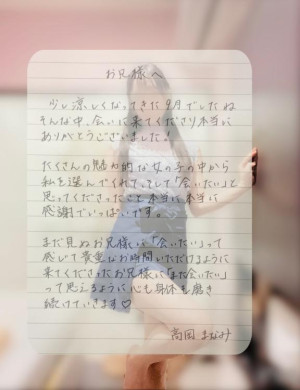 お兄様へ
少し涼しくなってきた9月でしたね
そんな中、会いに来てくださり本当に
ありがとうございました。
たくさんの魅力的な女の子の中から
私を選んでくれて、そして「会いたい」と
思ってくださったこと本当に本当に
感謝でいっぱいです。
まだ見ぬお兄様に「会いたい」って
感じて貴重なお時間いただけるように
来てくださったお兄様に「また会いたい」
って思えるように、心も身体も磨き
続けていきます♡
高岡 まなみ